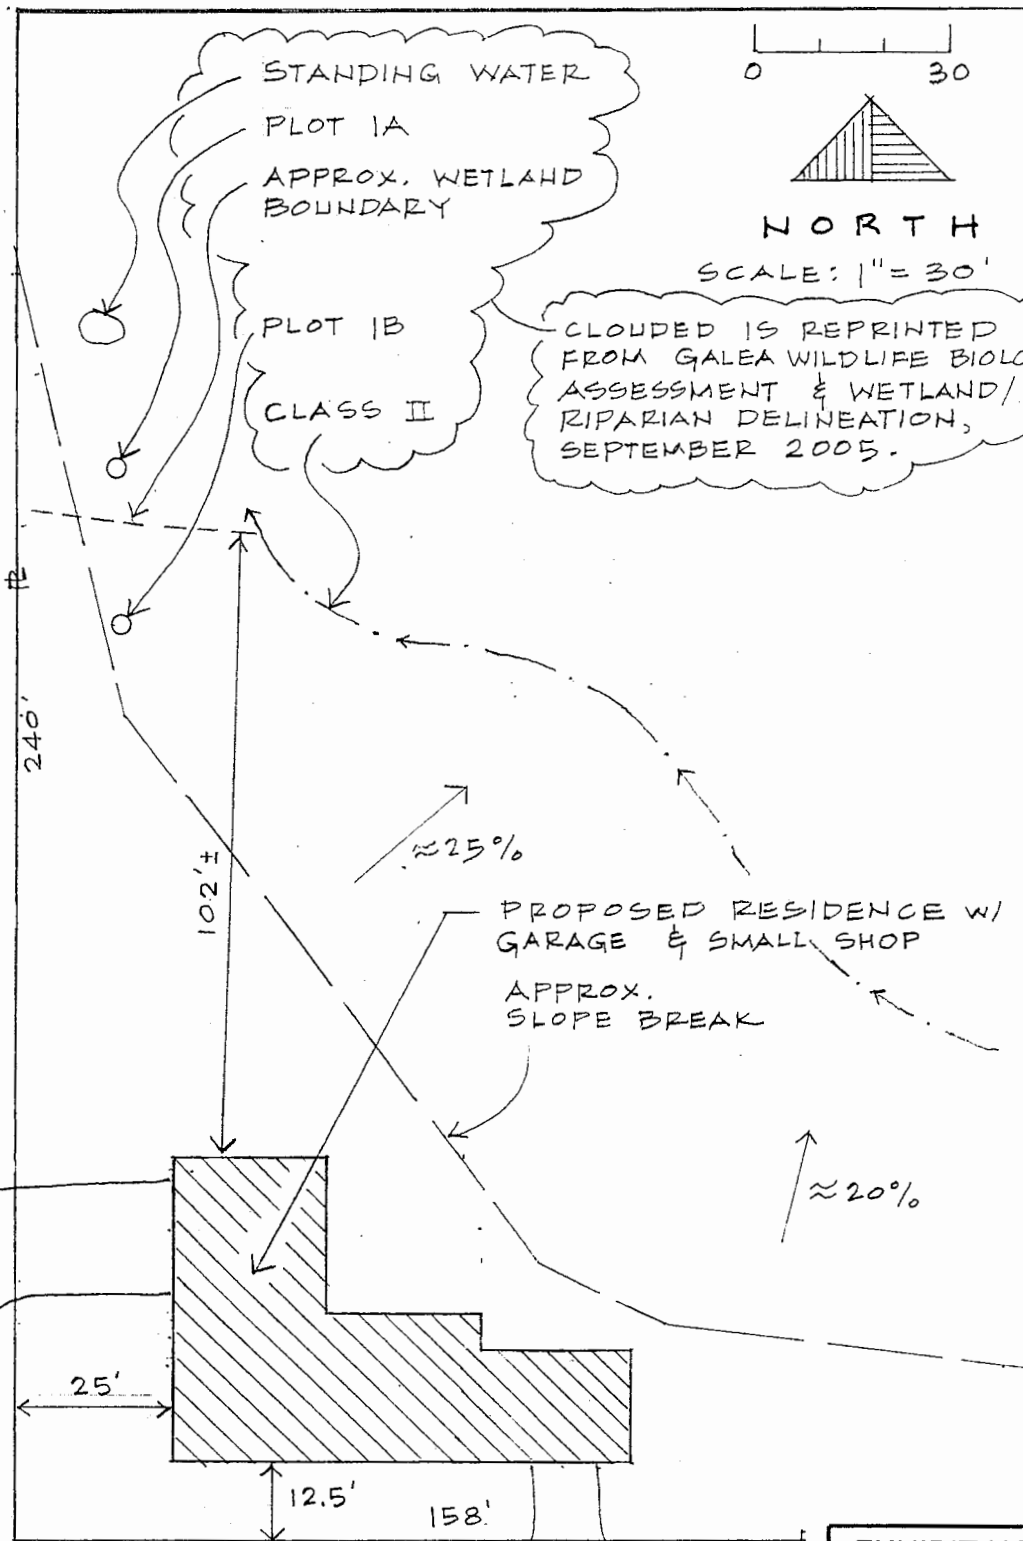 STANDING WATER
PLOT 1A
APPROX. WETLAND
BOUNDARY
PLOT 1B
CLASS II
0 30
NORTH
SCALE: 1" = 30'
CLOUDED IS REPRINTED
FROM GALEA WILDLIFE
ASSESSMENT & WETLAND/
RIPARIAN DELINEATION,
SEPTEMBER 2005.
PL
240'
102'±
≈25%
PROPOSED RESIDENCE W/
GARAGE & SMALL SHOP
APPROX.
SLOPE BREAK
≈20%
25'
12.5'
158'